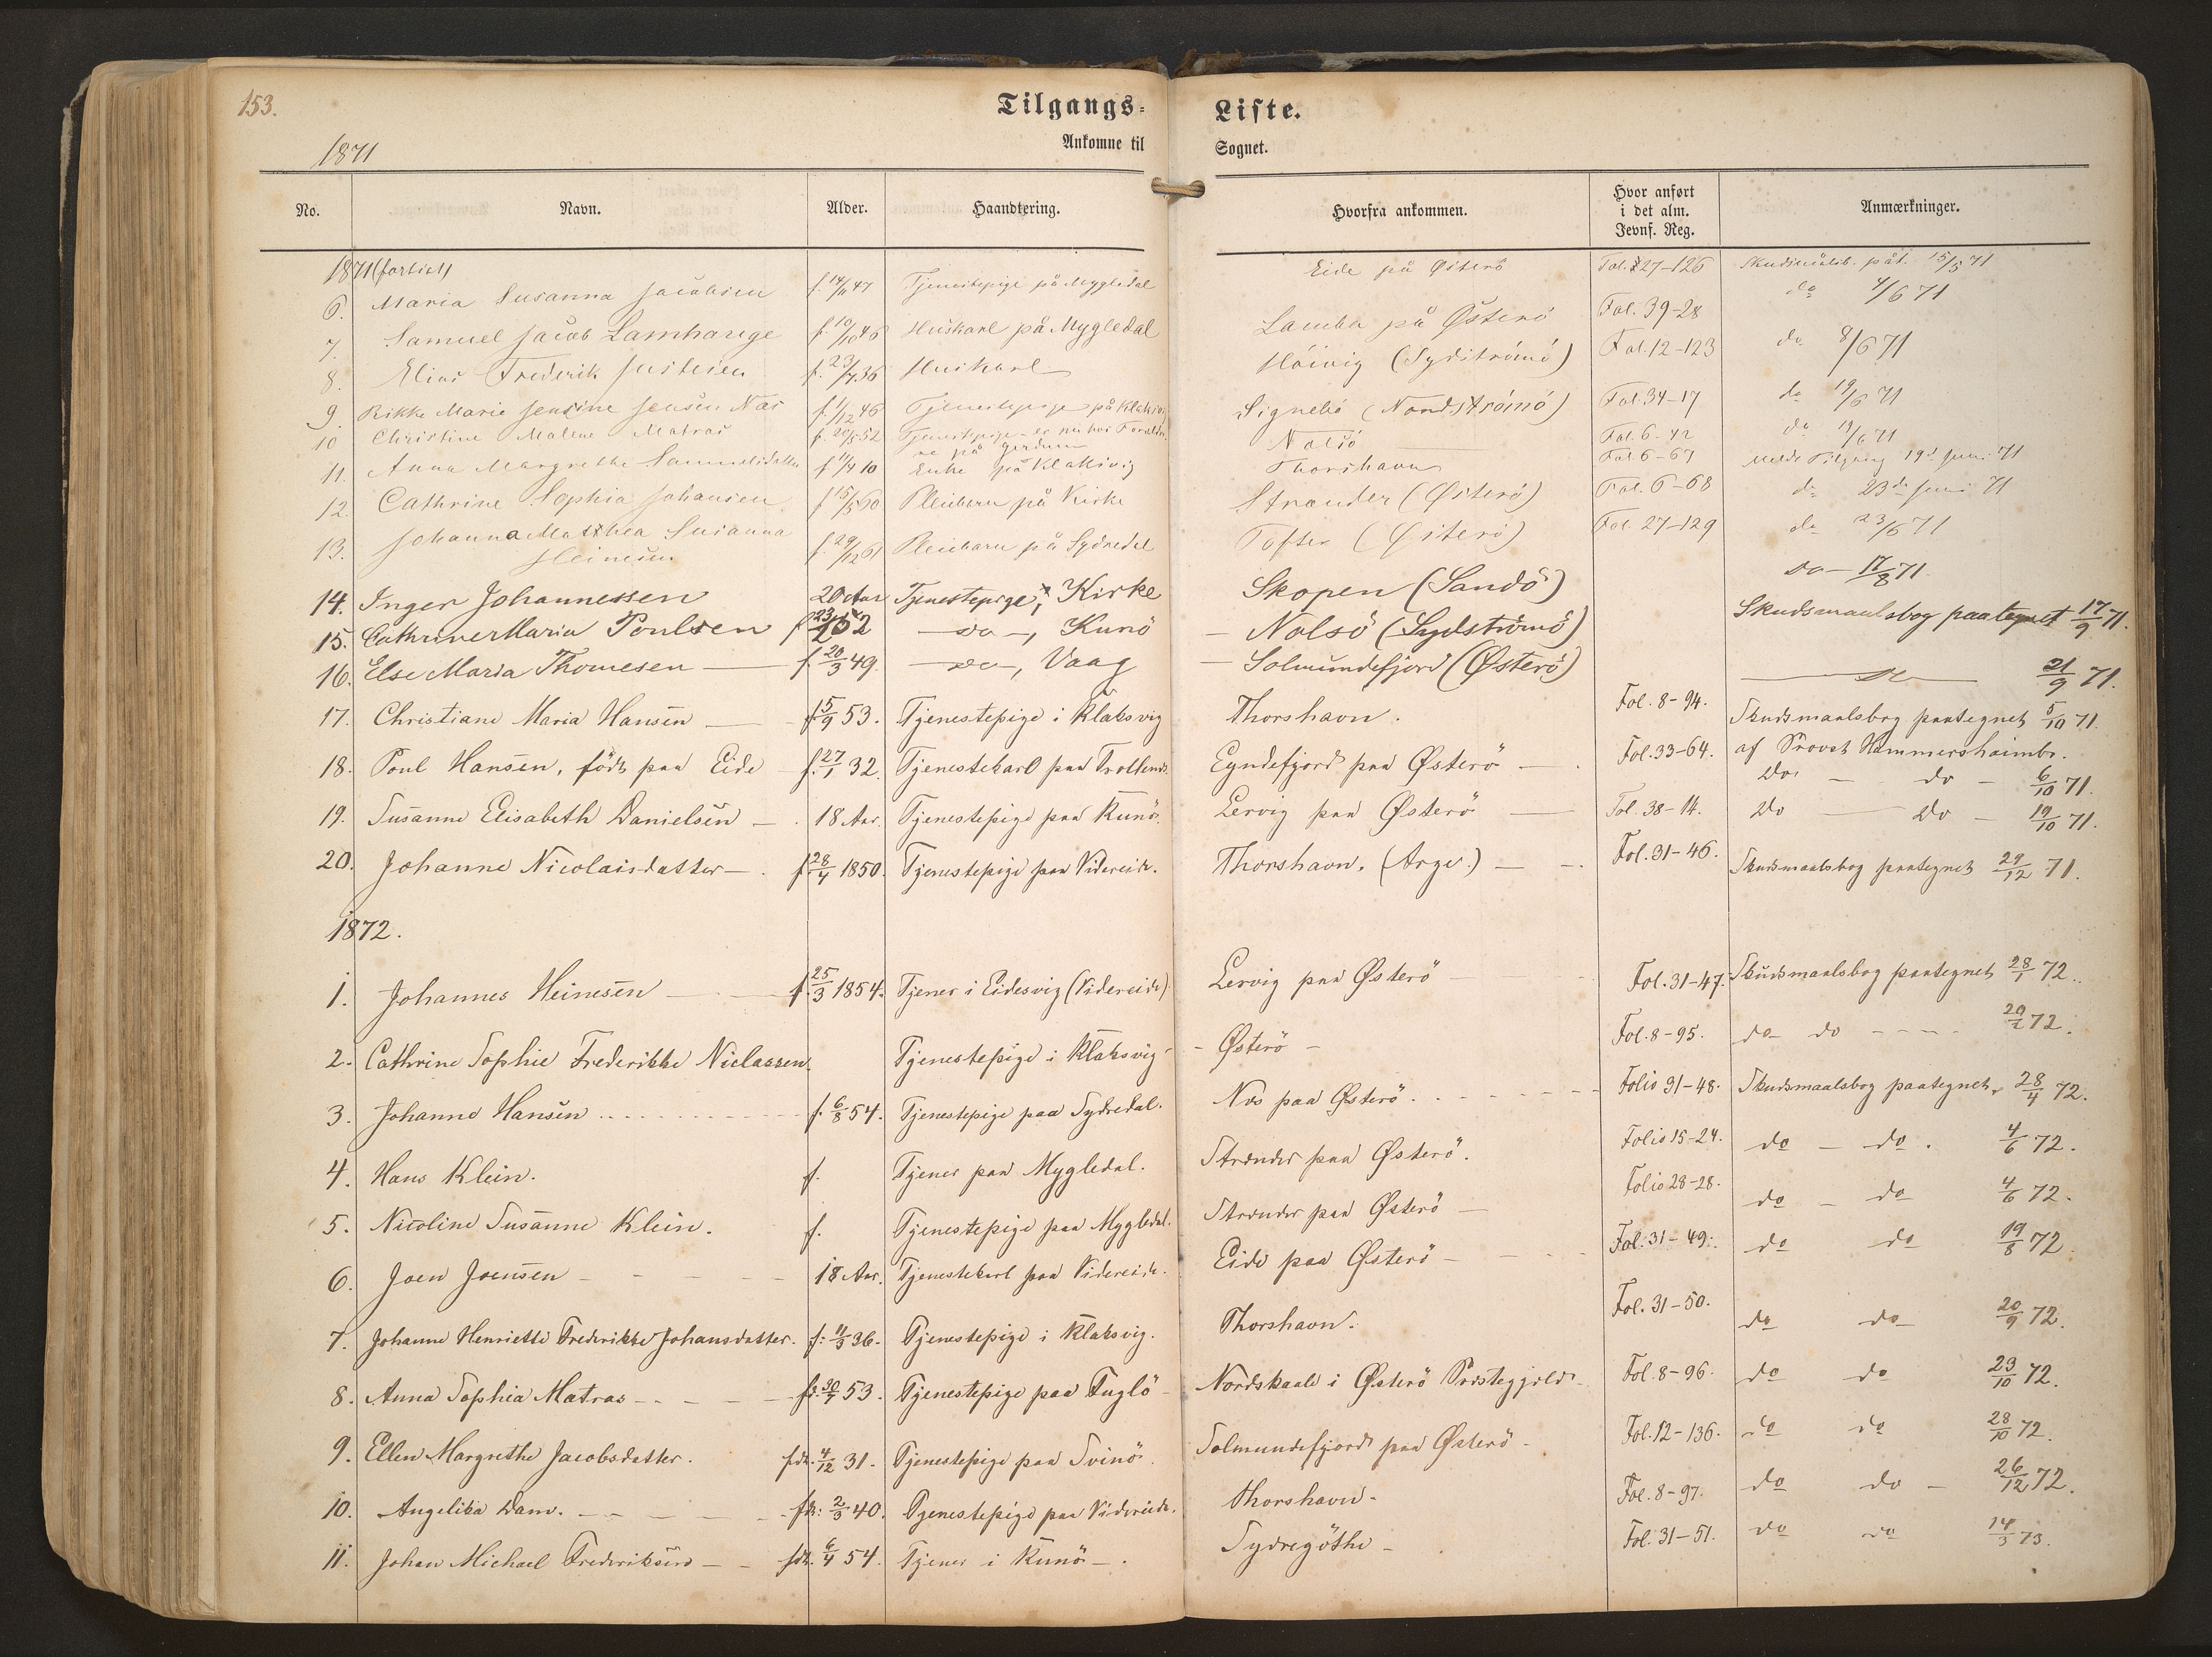 153.
Tilgangs-Liste.
1871
Ankomne til Sognet.
No. Navn. Alder. Haandtering. Hvorfra ankommen. Hvor anført i det alm. Jevnf. Reg. Anmærkninger.
1871 (fortsat)
6. Maria Susanna Jacobsen f. 47 Tjenestepige på Mygledal Eide på Østerö Fol. 27-126 påt. 15/5 71
7. Samuel Jacob Lamhauge f. 10/10 46 Huskarl på Mygledal Lamba på Østerö Fol. 39-28 do 4/6 71
8. Elias Frederik Justesen f. 23/7 36 Huskarl Höivig (Sydströmö) Fol. 12-123 do 8/6 71
9. Rikke Marie Jensine Jensen Næs f. 1/12 46 Tjenestepige på Klaksvig Signebö (Nordströmö) Fol. 34-17 do 19/6 71
10 Christine Malene Matras f. 20/5 52 Tjenestepige - er nu hos Forældre
ne på Nolsö Fol. 6-42 do 19/6 71
11. Anna Margrethe Samuelsdatter f 11/4 10 Enke på Klaksvig Thorshavn Fol. 6-67 Meldt Tilgang 19d Juni 71
12. Cathrine Sophia Johansen f 15/5 60 Pleiebarn på Kirke Strænder (Österö) Fol. 6-68 do 23de Juni 71
13. Johanna Matthea Susanna
Heinesen f. 29/12 61 Pleiebarn på Sydredal Tofter (Österö) Fol. 27-129 do 23/6 71
14. Inger Johannessen 20 Aar Tjenestepige, Kirke Skopen (Sandö) do 17/8 71.
15. Cathrine Maria Poulsen f 52 do, Kunö Nolsö (Sydströmö) Skudsmaalsbog paategnet 17/9 71.
16. Else Maria Thomesen f. 20/3 49. do, Vaag Solmundefjord (Østerö) do 21/9 71.
17. Christiane Maria Hansen f 5/9 53. Tjenestepige i Klaksvig Thorshavn. Fol. 8-94. Skudsmaalsbog paategnet 5/10 71.
af Provst Hammershaimb.
18. Poul Hansen, födt paa Eide f. 27/1 32. Tjenestekarl paa Trollenæs Eyndefjord paa Østerö Fol. 33-64. Do. do 6/10 71.
19. Susanne Elisabeth Danielsen 18 Aar. Tjenestepige paa Kunö. Lervig paa Østerö Fol. 38-14. Do Do 19/10 71.
20. Johanne Nicolaisdatter f. 28/4 1850. Tjenestepige paa Videreide. Thorshavn. (Arge.) Fol. 31-46. Skudsmaalsbog paategnet 29/12 71.
1872.
1. Johannes Heinesen f. 25/3 1854. Tjener i Eidesvig (Videreide) Lervig paa Østerö Fol. 31-47. Skudsmaalsbog paategnet 28/1 72.
2. Cathrine Sophie Frederikke Niclassen. Tjenestepige i Klaksvig Østerö Fol. 8-95. do do 72.
3. Johanne Hansen f. 6/8 54. Tjenestepige paa Sydredal. Næs paa Østerö. Folio 31-48. Skudsmaalsbog paategnet 28/4 72.
4. Hans Klein. f. Tjener paa Mygledal. Strænder paa Østerö. Folio 15-24. do do. 4/6 72.
5. Nicoline Susanne Klein. f. Tjenestepige paa Mygledal. Strænder paa Østerö Folio 28-28. do do 4/6 72.
6. Joen Joensen 18 Aar. Tjenestekarl paa Videreide. Eide paa Østerö Fol. 31-49. do do 19/8 72.
7. Johanne Henriette Frederikke Johansdatter. f: 36. Tjenestepige i Klaksvig. Thorshavn. Fol. 31-50. do do 20/9 72.
8. Anna Sophia Matras f. 30/7 53. Tjenestepige paa Fuglö Nordskaale i Østerö Præstegjeld Fol. 8-96. do do 23/10 72.
9. Ellen Margrethe Jacobsdatter. fdt. 4/12 31. Tjenestepige paa Svinö. Solmundefjord paa Østerö Fol. 12-136. do do 28/10 72.
10. Angelika Dam. fdt: 2/3 40. Tjenestepige paa Videreide. Thorshavn Fol. 8-97. do do 26/12 72.
11. Johan Michael Frederiksen fdt. 6/4 54. Tjener i Kunö. Sydregöthe Fol. 31-51. do do 14/3 73.